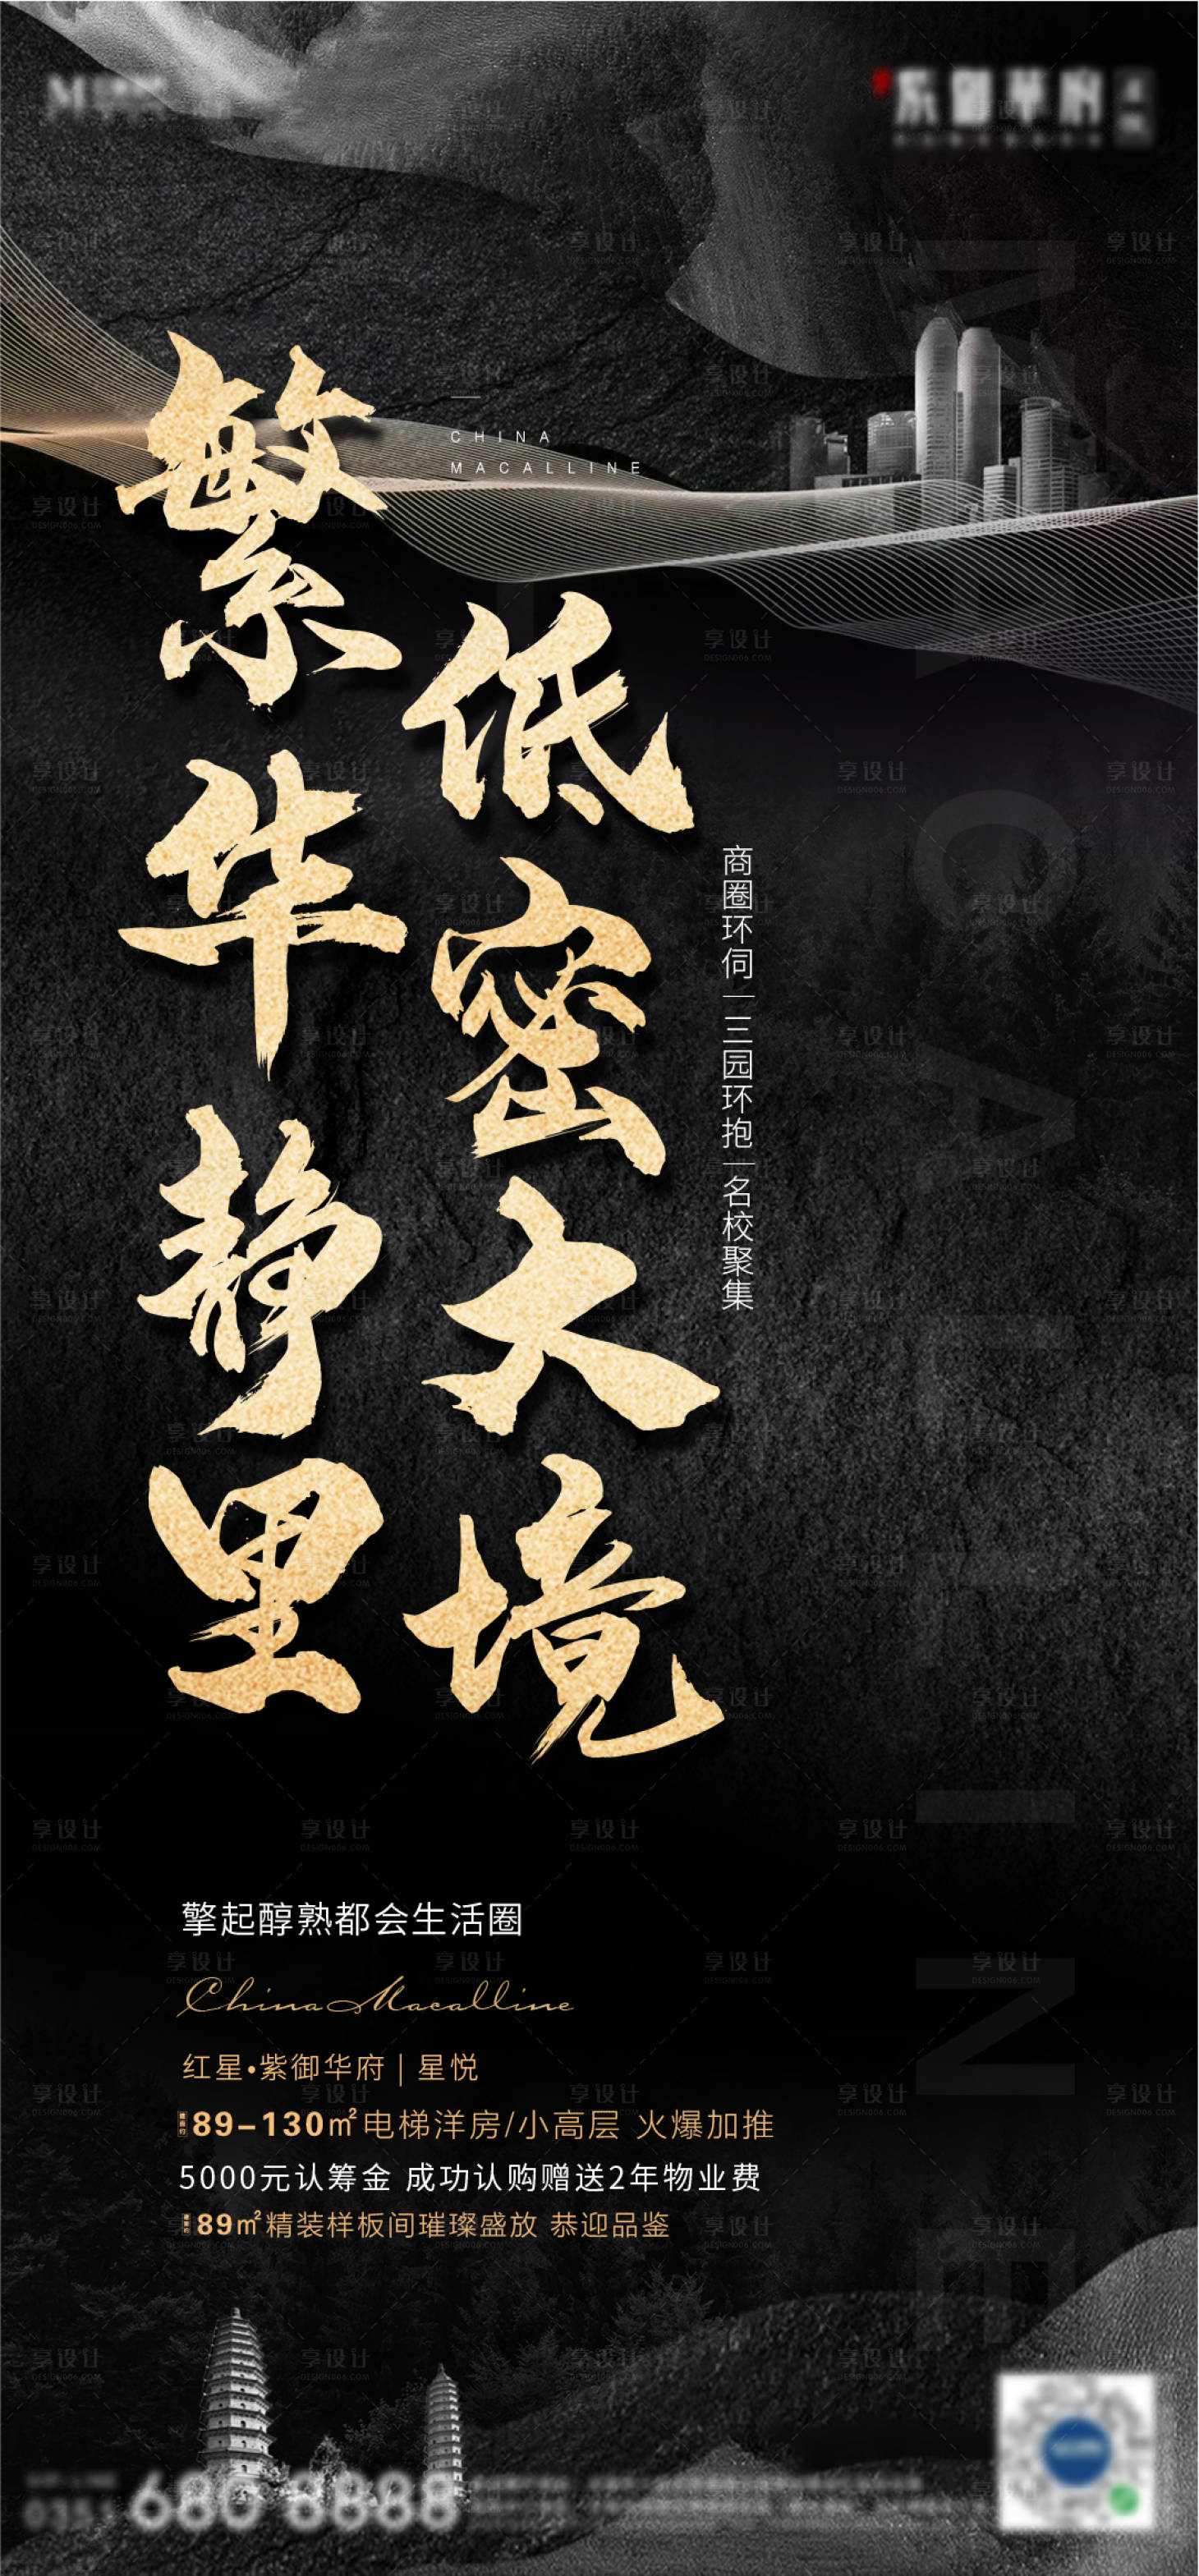 CHINA
MACALLINE
繁华静里
低密大境
商圈环伺|三园环抱|名校聚集
MACALLINE
擎起醇熟都会生活圈
China Macalline
红星•紫御华府|星悦
89-130㎡电梯洋房/小高层 火爆加推
5000元认筹金 成功认购赠送2年物业费
89㎡精装样板间璀璨盛放 恭迎品鉴
享设计
DESIGN006.COM